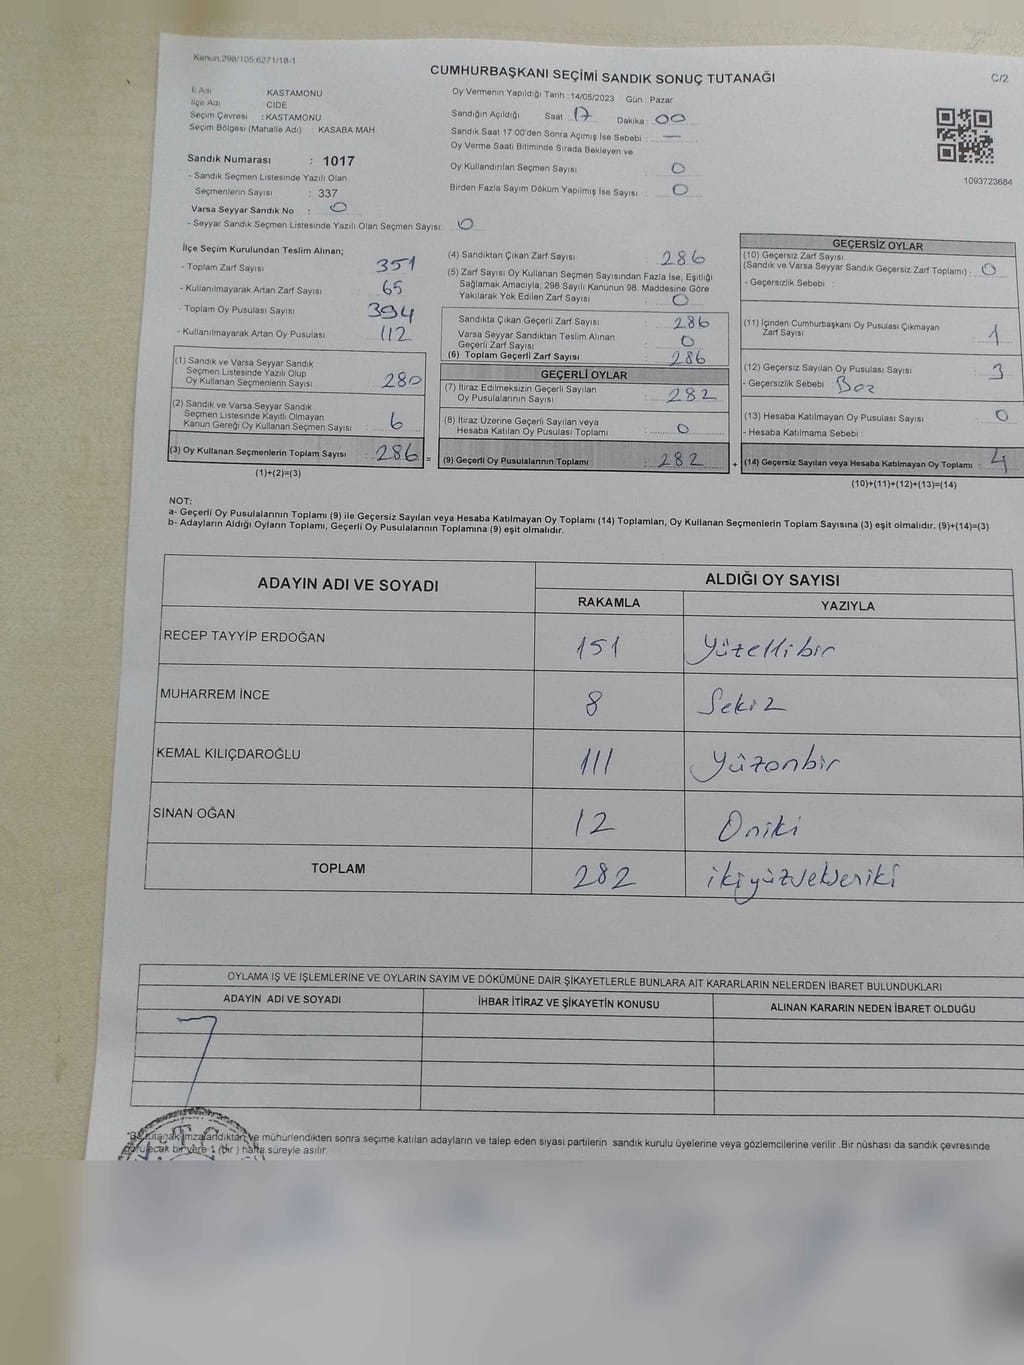 Kanun:298/105,6271/18-1
CUMHURBAŞKANI SEÇİMİ SANDIK SONUÇ TUTANAĞI
C/2
İl Adı KASTAMONU
İlçe Adı CİDE
Seçim Çevresi : KASTAMONU
Seçim Bölgesi (Mahalle Adı) : KASABA MAH
Oy Vermenin Yapıldığı Tarih :14/05/2023 Gün : Pazar
Sandığın Açıldığı Saat : 17 Dakika : 00
Sandık Saat 17:00'den Sonra Açımış İse Sebebi : —
Oy Verme Saati Bitiminde Sırada Bekleyen ve
Oy Kullandırılan Seçmen Sayısı : 0
Birden Fazla Sayım Döküm Yapılmış İse Sayısı : 0
1093723684
Sandık Numarası : 1017
- Sandık Seçmen Listesinde Yazılı Olan
Seçmenlerin Sayısı : 337
Varsa Seyyar Sandık No : 0
- Seyyar Sandık Seçmen Listesinde Yazılı Olan Seçmen Sayısı: 0
İlçe Seçim Kurulundan Teslim Alınan;
- Toplam Zarf Sayısı : 351
- Kullanılmayarak Artan Zarf Sayısı : 65
- Toplam Oy Pusulası Sayısı : 394
- Kullanılmayarak Artan Oy Pusulası : 112
(1) Sandık ve Varsa Seyyar Sandık
Seçmen Listesinde Yazılı Olup
Oy Kullanan Seçmenlerin Sayısı : 280
(2) Sandık ve Varsa Seyyar Sandık
Seçmen Listesinde Kayıtlı Olmayan
Kanun Gereği Oy Kullanan Seçmen Sayısı : 6
(3) Oy Kullanan Seçmenlerin Toplam Sayısı : 286 =
(1)+(2)=(3)
(4) Sandıktan Çıkan Zarf Sayısı : 286
(5) Zarf Sayısı Oy Kullanan Seçmen Sayısından Fazla İse, Eşitliği
Sağlamak Amacıyla, 298 Sayılı Kanunun 98. Maddesine Göre
Yakılarak Yok Edilen Zarf Sayısı : 0
Sandıkta Çıkan Geçerli Zarf Sayısı : 286
Varsa Seyyar Sandıktan Teslim Alınan
Geçerli Zarf Sayısı : 0
(6) Toplam Geçerli Zarf Sayısı : 286
GEÇERLİ OYLAR
(7) İtiraz Edilmeksizin Geçerli Sayılan
Oy Pusulalarının Sayısı : 282
(8) İtiraz Üzerine Geçerli Sayılan veya
Hesaba Katılan Oy Pusulası Toplamı : 0
(9) Geçerli Oy Pusulalarının Toplamı : 282 +
GEÇERSİZ OYLAR
(10) Geçersiz Zarf Sayısı
(Sandık ve Varsa Seyyar Sandık Geçersiz Zarf Toplamı) : 0
- Geçersizlik Sebebi :
(11) İçinden Cumhurbaşkanı Oy Pusulası Çıkmayan
Zarf Sayısı : 1
(12) Geçersiz Sayılan Oy Pusulası Sayısı : 3
- Geçersizlik Sebebi : Boz
(13) Hesaba Katılmayan Oy Pusulası Sayısı : 0
- Hesaba Katılmama Sebebi :
(14) Geçersiz Sayılan veya Hesaba Katılmayan Oy Toplamı : 4
(10)+(11)+(12)+(13)=(14)
NOT:
a- Geçerli Oy Pusulalarının Toplamı (9) ile Geçersiz Sayılan veya Hesaba Katılmayan Oy Toplamı (14) Toplamları, Oy Kullanan Seçmenlerin Toplam Sayısına (3) eşit olmalıdır. (9)+(14)=(3)
b- Adayların Aldığı Oyların Toplamı, Geçerli Oy Pusulalarının Toplamına (9) eşit olmalıdır.
ADAYIN ADI VE SOYADI
ALDIĞI OY SAYISI
RAKAMLA YAZIYLA
RECEP TAYYİP ERDOĞAN 151 Yüzellibir
MUHARREM İNCE 8 Sekiz
KEMAL KILIÇDAROĞLU 111 Yüzonbir
SİNAN OĞAN 12 Oniki
TOPLAM 282 ikiyüzsekseniki
OYLAMA İŞ VE İŞLEMLERİNE VE OYLARIN SAYIM VE DÖKÜMÜNE DAİR ŞİKAYETLERLE BUNLARA AİT KARARLARIN NELERDEN İBARET BULUNDUKLARI
ADAYIN ADI VE SOYADI İHBAR İTİRAZ VE ŞİKAYETİN KONUSU ALINAN KARARIN NEDEN İBARET OLDUĞU
imzalandıktan ve mühürlendikten sonra seçime katılan adayların ve talep eden siyasi partilerin sandık kurulu üyelerine veya gözlemcilerine verilir .Bir nüshası da sandık çevresinde
bir yere 1 (bir ) hafta süreyle asılır